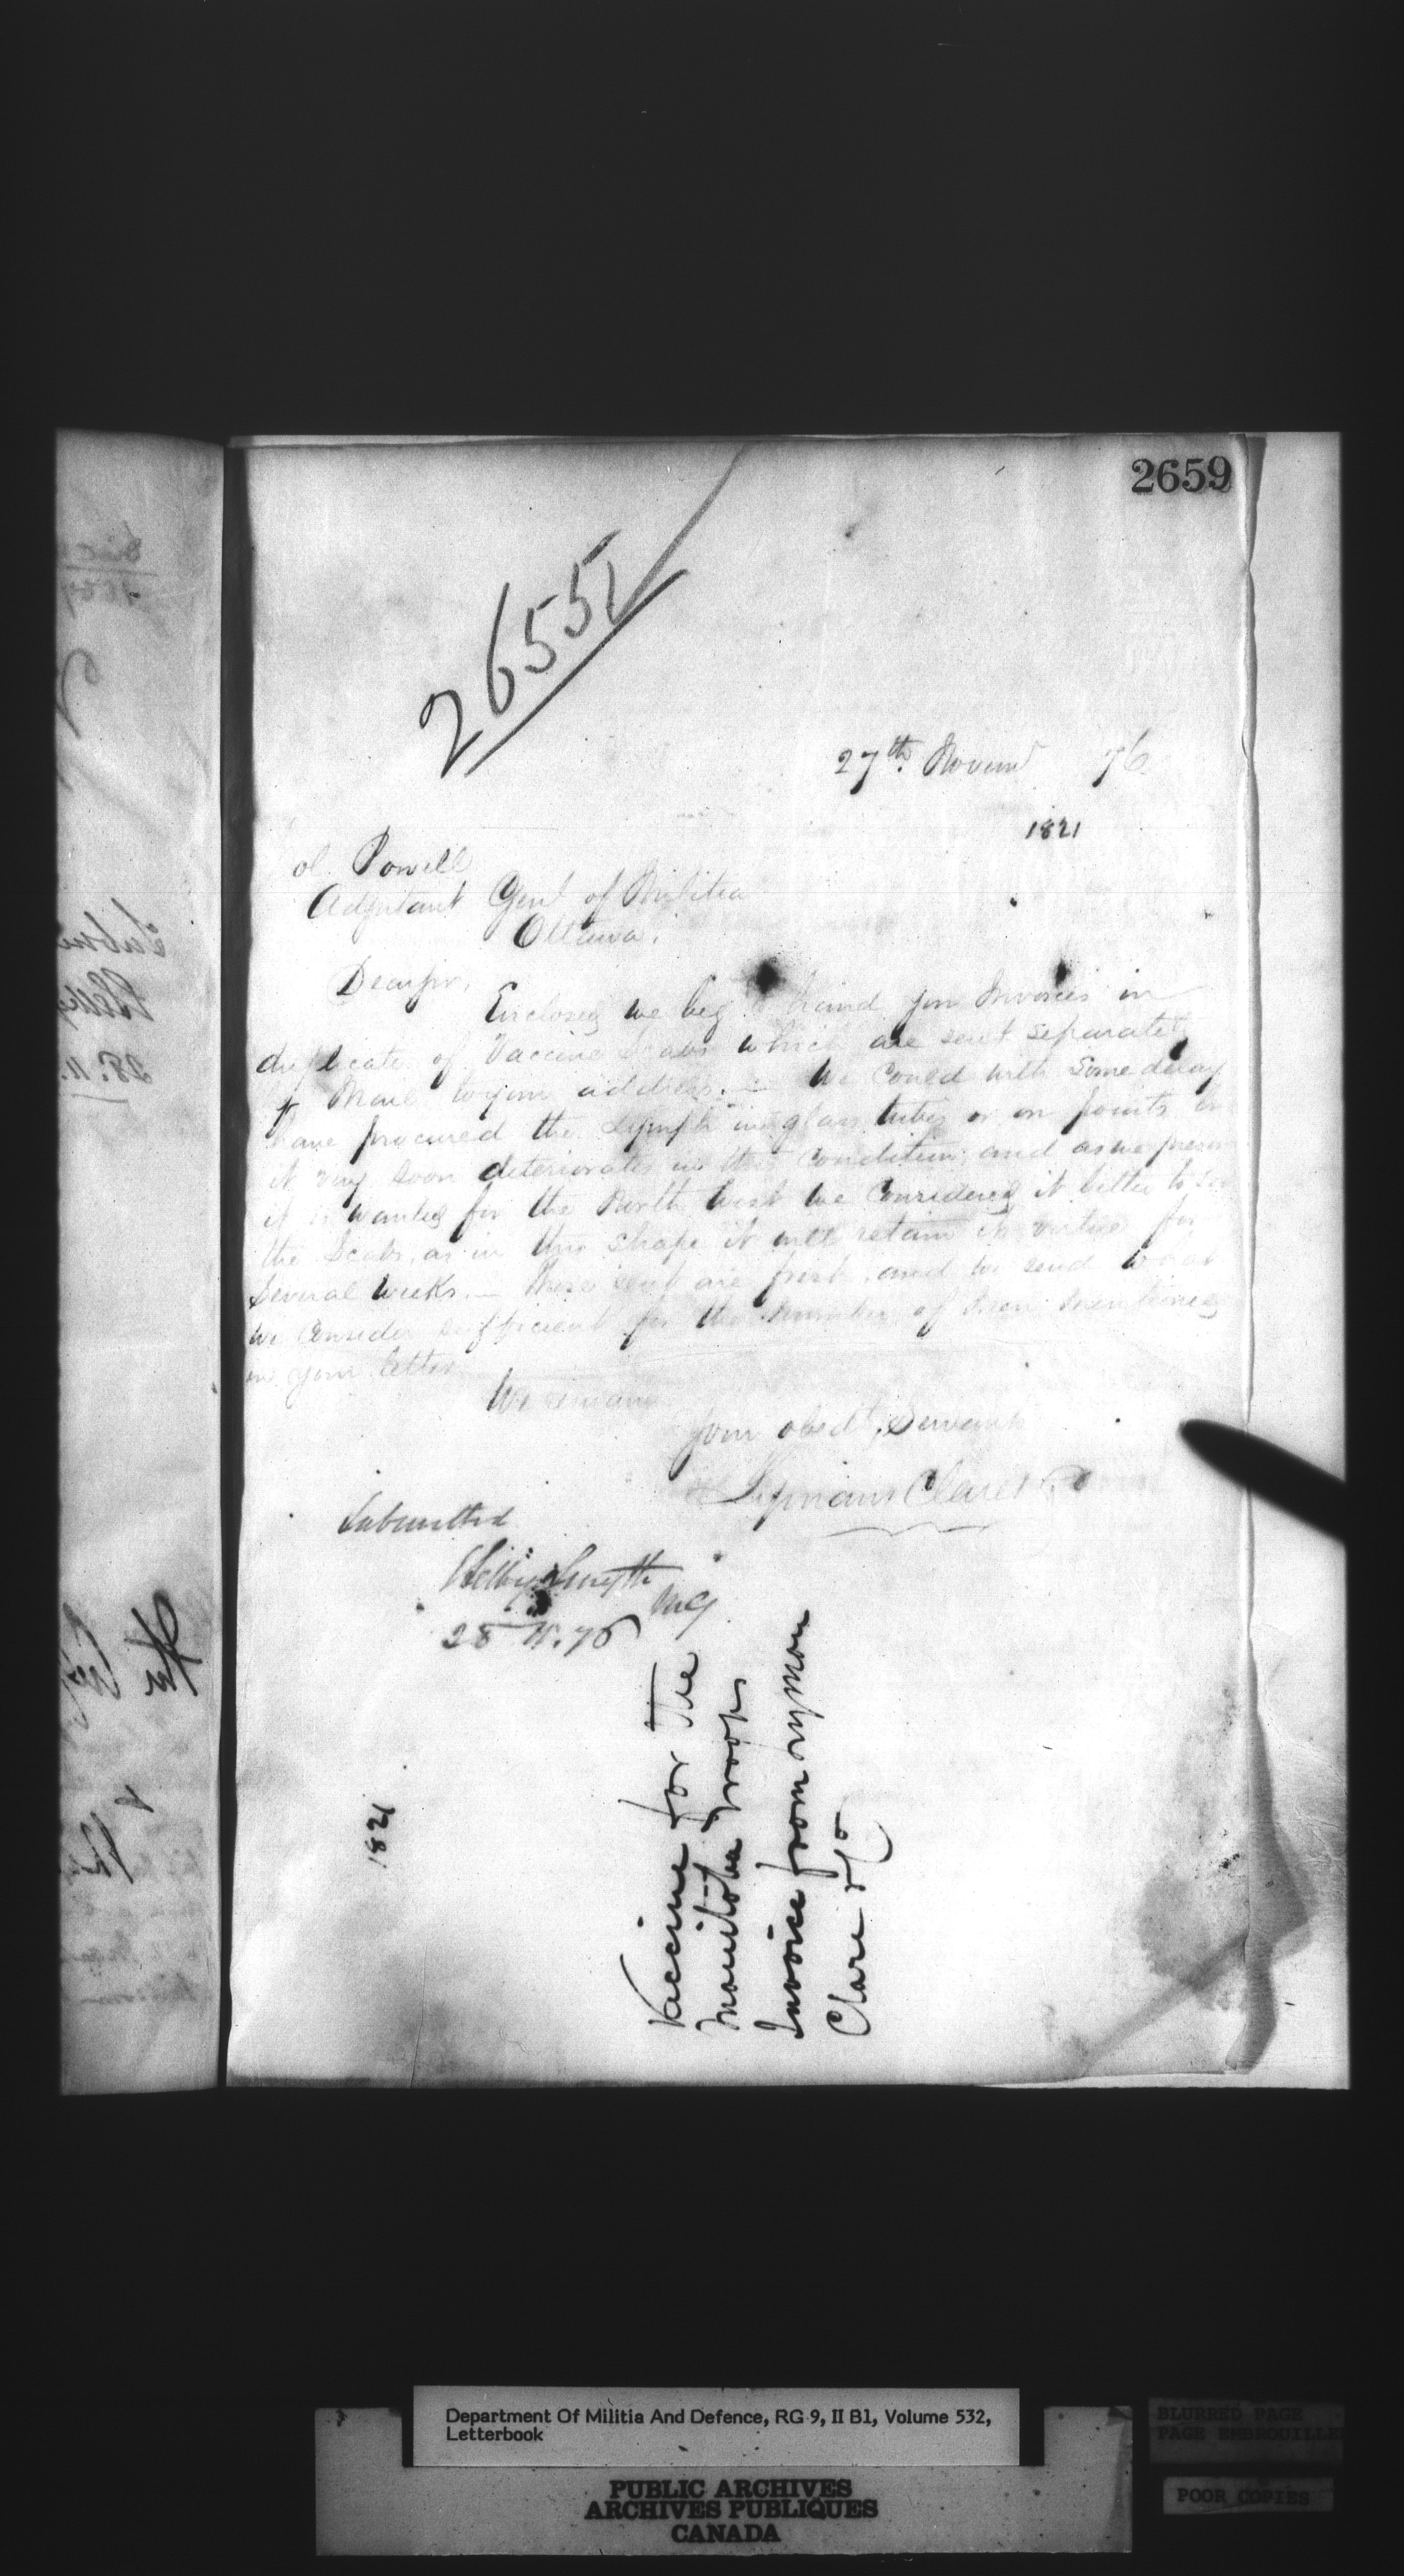 2659
26551
27th Novem 76
1821
ol. Powell
Adjutant Genl of Militia
Ottawa.
Dear Sir,
Enclosed we beg to hand you Invoices in
duplicate of Vaccine Scabs which are sent separately
by Mail to your address. — We could with some delay
have procured the Lymph in glass tubes or on points
it very soon deteriorates in this condition, and as we presum
it is wanted for the North West we considered it better to
the Scabs, as in this shape it will retain its virtue for
several weeks. — Those sent are fresh, and we send what
we consider sufficient for the number of men mentioned
in your letter
We remain
Your obedt Servants
Lymans Clare & Co
Submitted
Selby Smyth
MG
28 11.76
1821
Vaccine for the
Manitoba Troops
Invoice from Lyman
Clare & Co
Department Of Militia And Defence, RG 9, II B1, Volume 532,
Letterbook
PUBLIC ARCHIVES
ARCHIVES PUBLIQUES
CANADA
BLURRED PAGE
PAGE EMBROUILLE
POOR COPIES